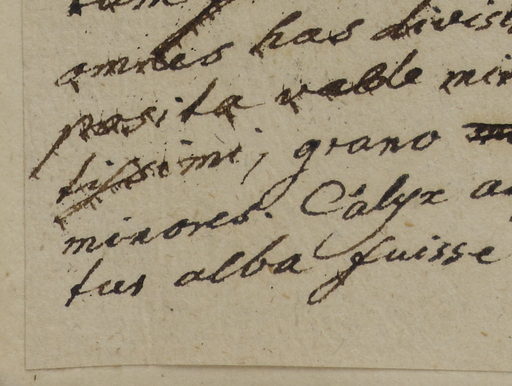 omnes has divis
posita valde mi
tissimi, grano
minores. Câlyx a
tus alba fuisse